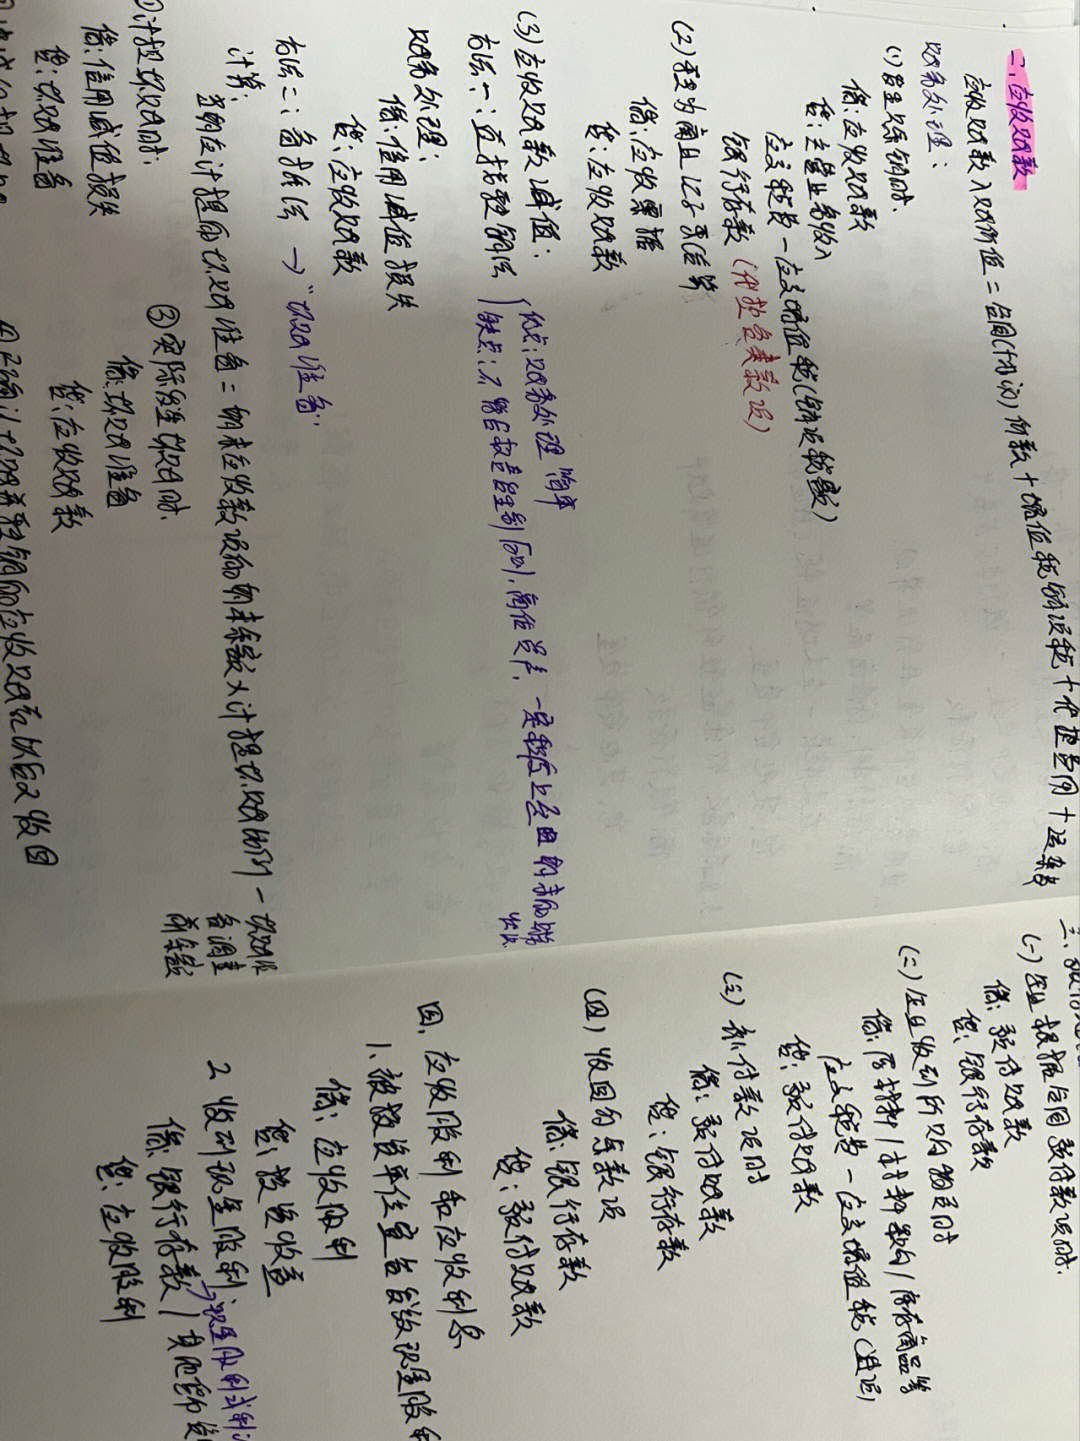 二、应收账款
应收账款入账价值=合同(协议)价款+增值税销项税+代垫费用+运杂费
账务处理:
(1)发生赊销时.
借:应收账款
贷:主营业务收入
应交税费-应交增值税(销项税额)
银行存款(代垫各类款项)
(2)改为商业汇票结算
借:应收票据
贷:应收账款
(3)应收账款减值:
方法一:直接转销法
优点:账务处理简单
缺点:不符合权责发生制
账务处理:
借:信用减值损失
贷:应收账款
方法二:备抵法→"坏账准备.
计算:
当期应计提的坏账准备=期末应收款项的期末余额×计提坏账的%-坏账准备调整前余额
①计提坏账时:
借:信用减值损失
贷:坏账准备
③实际发生坏账时.
借:坏账准备
贷:应收账款
④已确认坏账并转销的应收账款以后又收回
(一)企业根据合同预付款项时.
借:预付账款
贷:银行存款
(二)企业收到所购物资时
借:原材料/材料采购/库存商品等
应交税费-应交增值税(进项)
贷:预付账款
(三)补付款项时
借:预付账款
贷:银行存款
(四)收回多余款项
借:银行存款
贷:预付账款
四、应收股利和应收利息
1.被投资单位宣告发放现金股利
借:应收股利
贷:投资收益
2 收到现金股利
借:银行存款/其他货
贷:应收股利